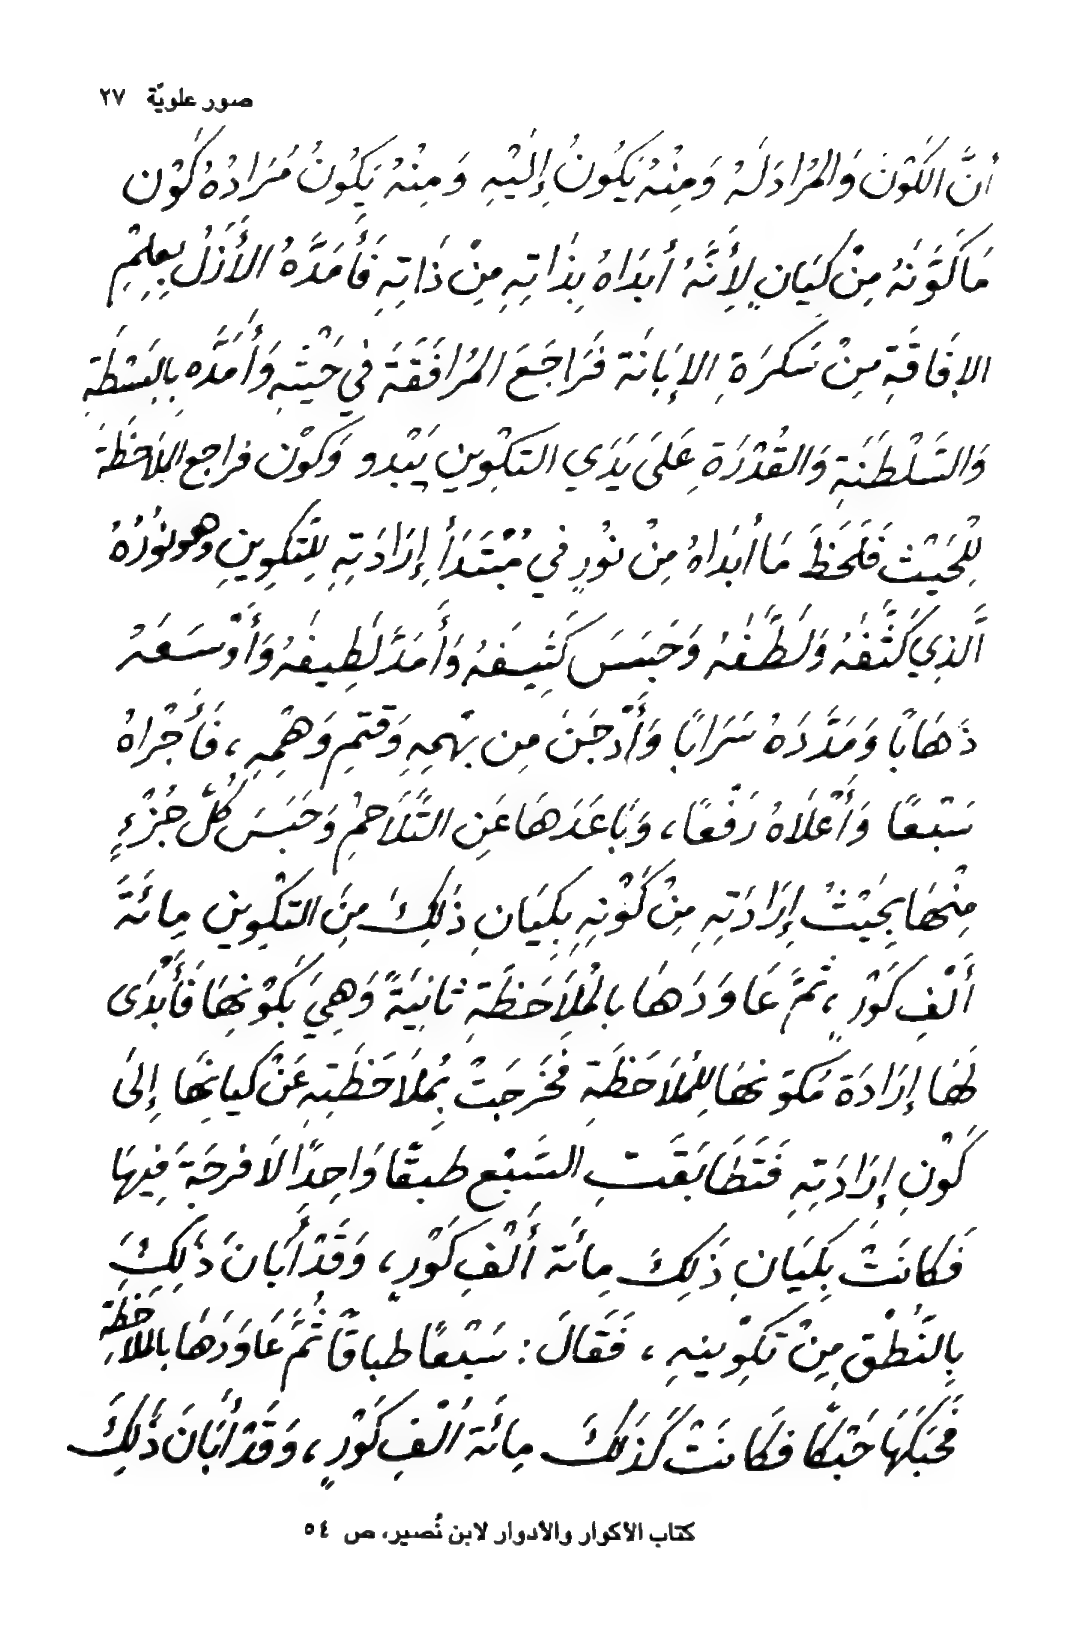 صور علويّة ٢٧
أنَّ الكَوْنَ وَالمُرَادَ لَهُ وَمِنْهُ يَكُونُ إِلَيْهِ وَمِنْهُ يَكُونُ مُرَادُهُ كَوْن
مَا كَوَّنَهُ مِنْ كَيَانٍ لِأَنَّهُ أَبَدَاهُ بِذَاتِهِ مِنْ ذَاتِهِ فَأَمَدَّهُ الأَزَلُ بِعِلْمِ
الإفَاقَةِ مِنْ سَكرَةِ الإبَانَة فَرَاجَعَ المُرَافَقَةَ في حَيْثِهِ وَأَمَدَّه بِالبَسْطَةِ
وَالسَّلْطَنَةِ وَالقُدْرَةِ عَلَى يَدَي التكْوِينِ يَبْدو وَكَوْن فراجع الملَاحَظَة
لِلْحَيْث فَلَحَظَ مَا أَبَدَاهُ مِنْ نُورٍ في مُبْتَدَأ إِرَادَتِهِ لِلتَّكوِينِ وهو نُورُهُ
الَّذِي كَثَّفَهُ وَلَطَّفَهُ وَحَبَسَ كَثِيفَهُ وَأَمَدَّ لَطِيفَهُ وَأَوْسَعَهُ
ذَهَابًا وَمَدَّدَهُ سَرَابًا وَأَدْجَنَ مِن بَهْمِهِ وَقَتمِ وَهْمِهِ، فَأَجْرَاهُ
سَبْعًا وَأَعْلَاهُ رَفْعًا، وَبَاعَدَهَا عَنِ التَّلَاحُمِ وَحَبَسَ كُلَّ جُزْءٍ
مِنْهَا بِحَيْثُ إِرَادَتِهِ مِنْ كَوْنِهِ بِكَيَانِ ذَلِكَ مِنَ التكْوِينِ مِائَةَ
أَلْفِ كَوْرٍ، ثمَّ عَاوَدَهَا بالمُلَاحَظَةِ ثَانِيَةً وَهِيَ بَكَوْنِهَا فَأَبْدَى
لَهَا إِرَادَة مُكَوّنهَا لِلمُلَاحَظَةِ فَخَرَجَتْ بِمُلَاحَظَتِهِ عَنْ كيانِهَا إِلَى
كَوْنِ إِرَادَتِهِ فَتَطَابَقَتِ السَبْع طبقًا وَاحِدًا لَا فرجَةَ فِيهَا
فَكَانَتْ بِكَيَانِ ذَلِكَ مِائَة أَلْفِ كَوْرٍ، وَقَدْ أَبَانَ ذَلِكَ
بِالنُّطْقِ مِنْ تَكوِينِهِ، فَقَالَ: سَبْعًا طباقًا ثُمَّ عَاوَدَهَا بالملاحَظَة
فَحَبَكَهَا حَبْكًا فكَانَتْ كَذَلكَ مِائَة أَلْفِ كَوْرٍ، وَقَدْ أَبَانَ ذَلِكَ
كتاب الأكوار والأدوار لابن نُصير، ص ٥٤